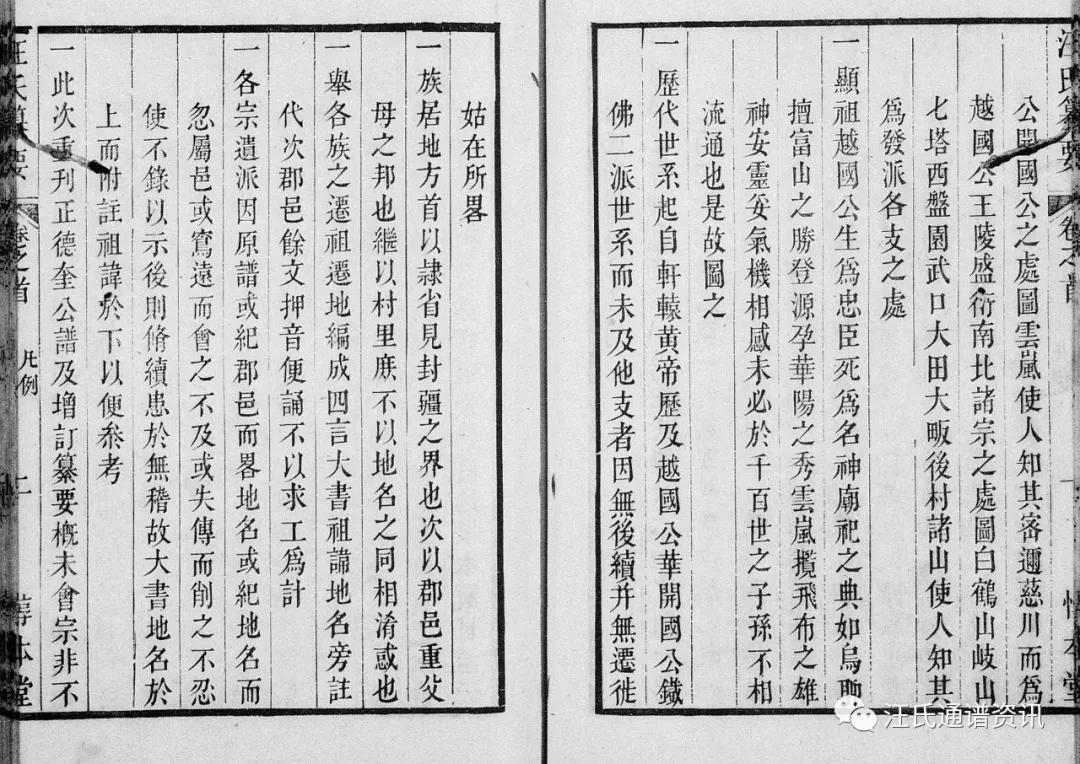 公開國公之處圖雲嵐使人知其密邇慈川而爲
越國公王陵盛衍南北諸宗之處圖白鶴山岐山
七塔西盤園武口大田大畈後村諸山使人知其
爲發派各支之處
一顯祖越國公生爲忠臣死爲名神廟祀之典如烏聊
擅富山之勝登源孕華陽之秀雲嵐攬飛布之雄
神安靈妥氣機相感未必於千百世之子孫不相
流通也是故圖之
一歷代世系起自軒轅黃帝歷及越國公華開國公鐵
佛二派世系而未及他支者因無後續并無遷徙
姑在所畧
一族居地方首以隸省見封疆之界也次以郡邑重父
母之邦也繼以村里庶不以地名之同相淆惑也
一舉各族之遷祖遷地編成四言大書祖諱地名旁註
代次郡邑餘文押音便誦不以求工爲計
一各宗遺派因原譜或紀郡邑而畧地名或紀地名而
忽屬邑或窵遠而會之不及或失傳而削之不忍
使不錄以示後則脩續患於無稽故大書地名於
上而附註祖諱於下以便叅考
一此次重刊正德奎公譜及增訂纂要槪未會宗非不
汪氏纂要
卷之首
凡例
二
堂
汪氏通譜资讯